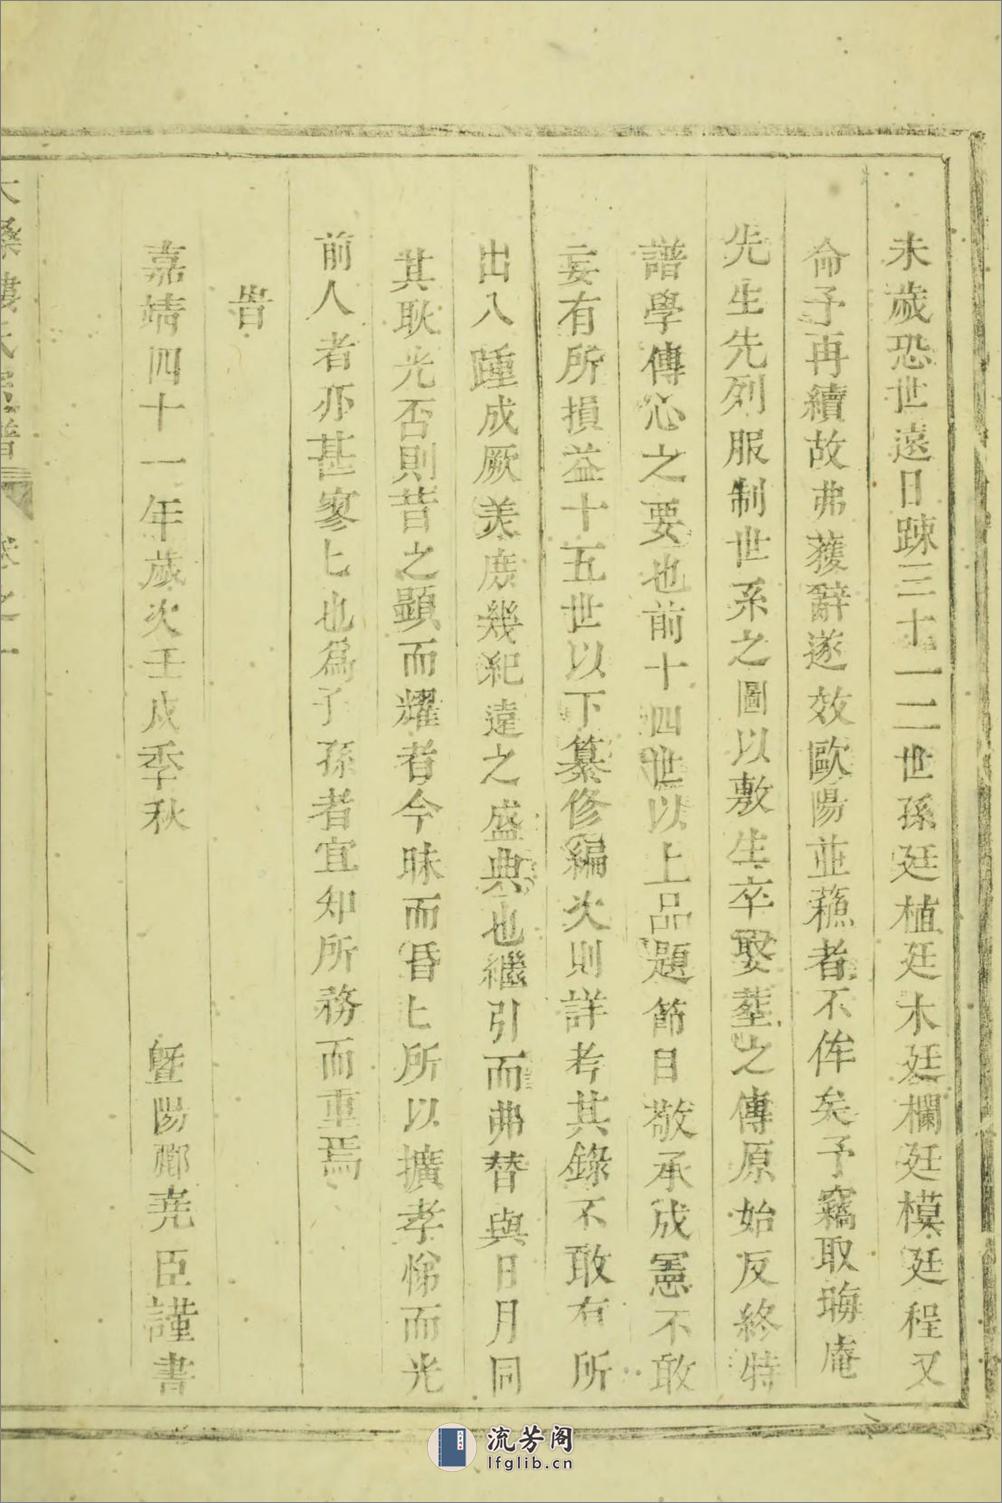 未歲恐世遠日踈三十一二世孫廷植廷木廷欄廷模廷程又
命予再續故弗獲辭遂效歐陽並蘓者不侔矣予竊取塰庵
先生先列服制世系之圖以敷生卒娶塟之傳原始反終特
譜學傳心之要也前十四世以上品題節目敬承成憲不敢
妄有所損益十五世以下纂修編次則詳考其錄不敢有所
出入踵成厥美庻幾紀遠之盛典也繼引而弗替與日月同
其耿光否則昔之顯而耀者今昧而昏匕所以擴孝悌而光
前人者亦甚寥匕也爲子孫者宜知所務而重焉
旹
嘉靖四十一年歲次壬戌季秋 曁陽酈堯臣謹書
氏宗譜 卷之一
流芳阁
lfglib.cn